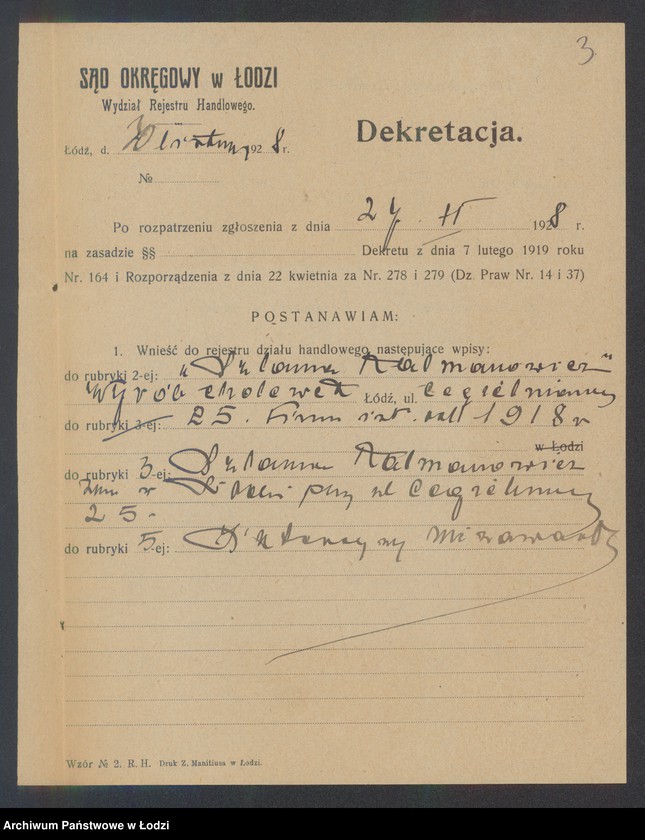 3
SĄD OKRĘGOWY w ŁODZI
Wydział Rejestru Handlowego.
Dekretacja.
Łódź, d. 1928 r.
№
Po rozpatrzeniu zgłoszenia z dnia 27 II 1928 r.
na zasadzie §§ Dekretu z dnia 7 lutego 1919 roku
Nr. 164 i Rozporządzenia z dnia 22 kwietnia za Nr. 278 i 279 (Dz. Praw Nr. 14 i 37)
POSTANAWIAM:
1. Wnieść do rejestru działu handlowego następujące wpisy:
do rubryki 2-ej: „Szlama Kalmanowicz"
Wyrób cholewek Łódź, ul. Cegielniana
do rubryki 3-ej: 25. Firma istn. od 1918 r
w Łodzi
do rubryki 3-ej: Szlama Kalmanowicz
zam w Łodzi przy ul Cegielnianej
25.
do rubryki 5-ej:
Wzór № 2. R. H. Druk Z. Manitiusa w Łodzi.
Archiwum Państwowe w Łodzi